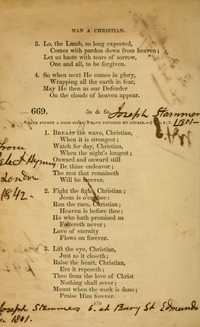 MAN A CHRISTIAN.
3. Lo, the Lamb, so long expected,
Comes with pardon down from heaven;
Let us haste with tears of sorrow,
One and all, to be forgiven.
4. So when next He comes in glory,
Wrapping all the earth in fear,
May He then as our Defender
On the clouds of heaven appear.
669. 5s & 6s. Joseph Stammers
1801-
"I HAVE FOUGHT A GOOD FIGHT, I HAVE FINISHED MY COURSE."
1. BREAST the wave, Christian,
When it is strongest;
Watch for day, Christian,
When the night's longest;
Onward and onward still
Be thine endeavor;
The rest that remaineth
Will be forever.
from
Select Hymns
London
1842.
2. Fight the fight, Christian;
Jesus is o'er thee;
Run the race, Christian;
Heaven is before thee:
He who hath promised us
Faltereth never;
Love of eternity
Flows on forever.
3. Lift the eye, Christian,
Just as it closeth;
Raise the heart, Christian,
Ere it reposeth;
Thee from the love of Christ
Nothing shall sever;
Mount when the work is done;
Praise Him forever.
Joseph Stammers b. at Bury St Edmunds
1801.